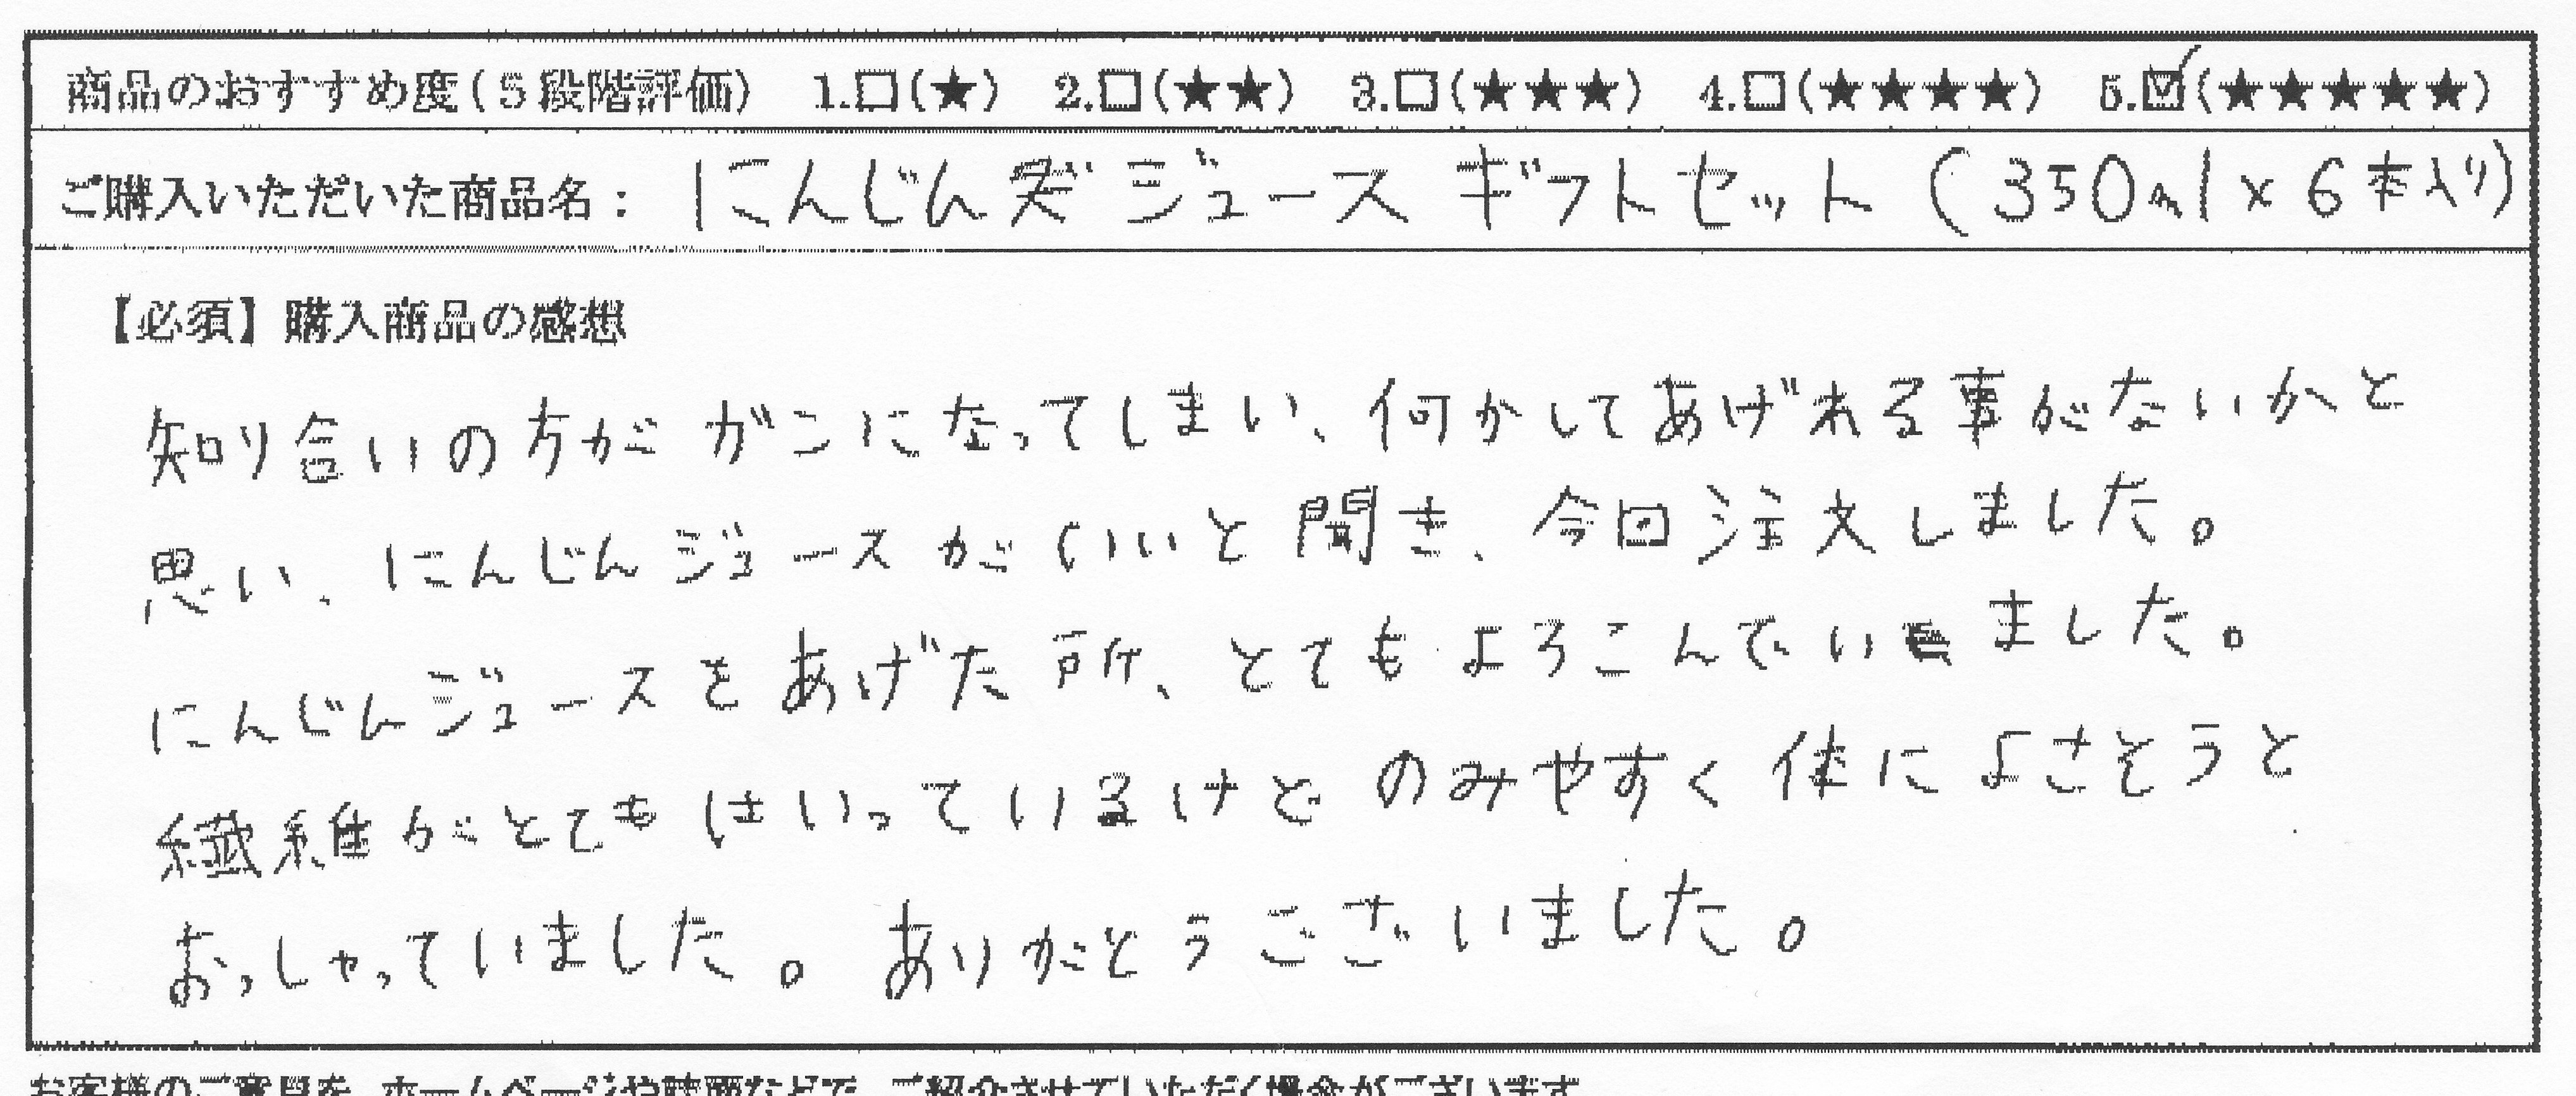 商品のおすすめ度(5段階評価) 1.□(★) 2.□(★★) 3.□(★★★) 4.□(★★★★) 5.☑(★★★★★)
ご購入いただいた商品名: にんじん ジュース ギフトセット (350ml×6本入り)
【必須】購入商品の感想
知り合いの方がガンになってしまい、何かしてあげれる事がないかと
思い、にんじんジュースがいいと聞き、今回注文しました。
にんじんジュースをあげた所、とてもよろこんでいました。
繊維がとてもはいっているけどのみやすく体によさそうと
おっしゃっていました。ありがとうございました。
お客様のご意見を、ホームページや誌面などで、ご紹介させていただく場合がございます